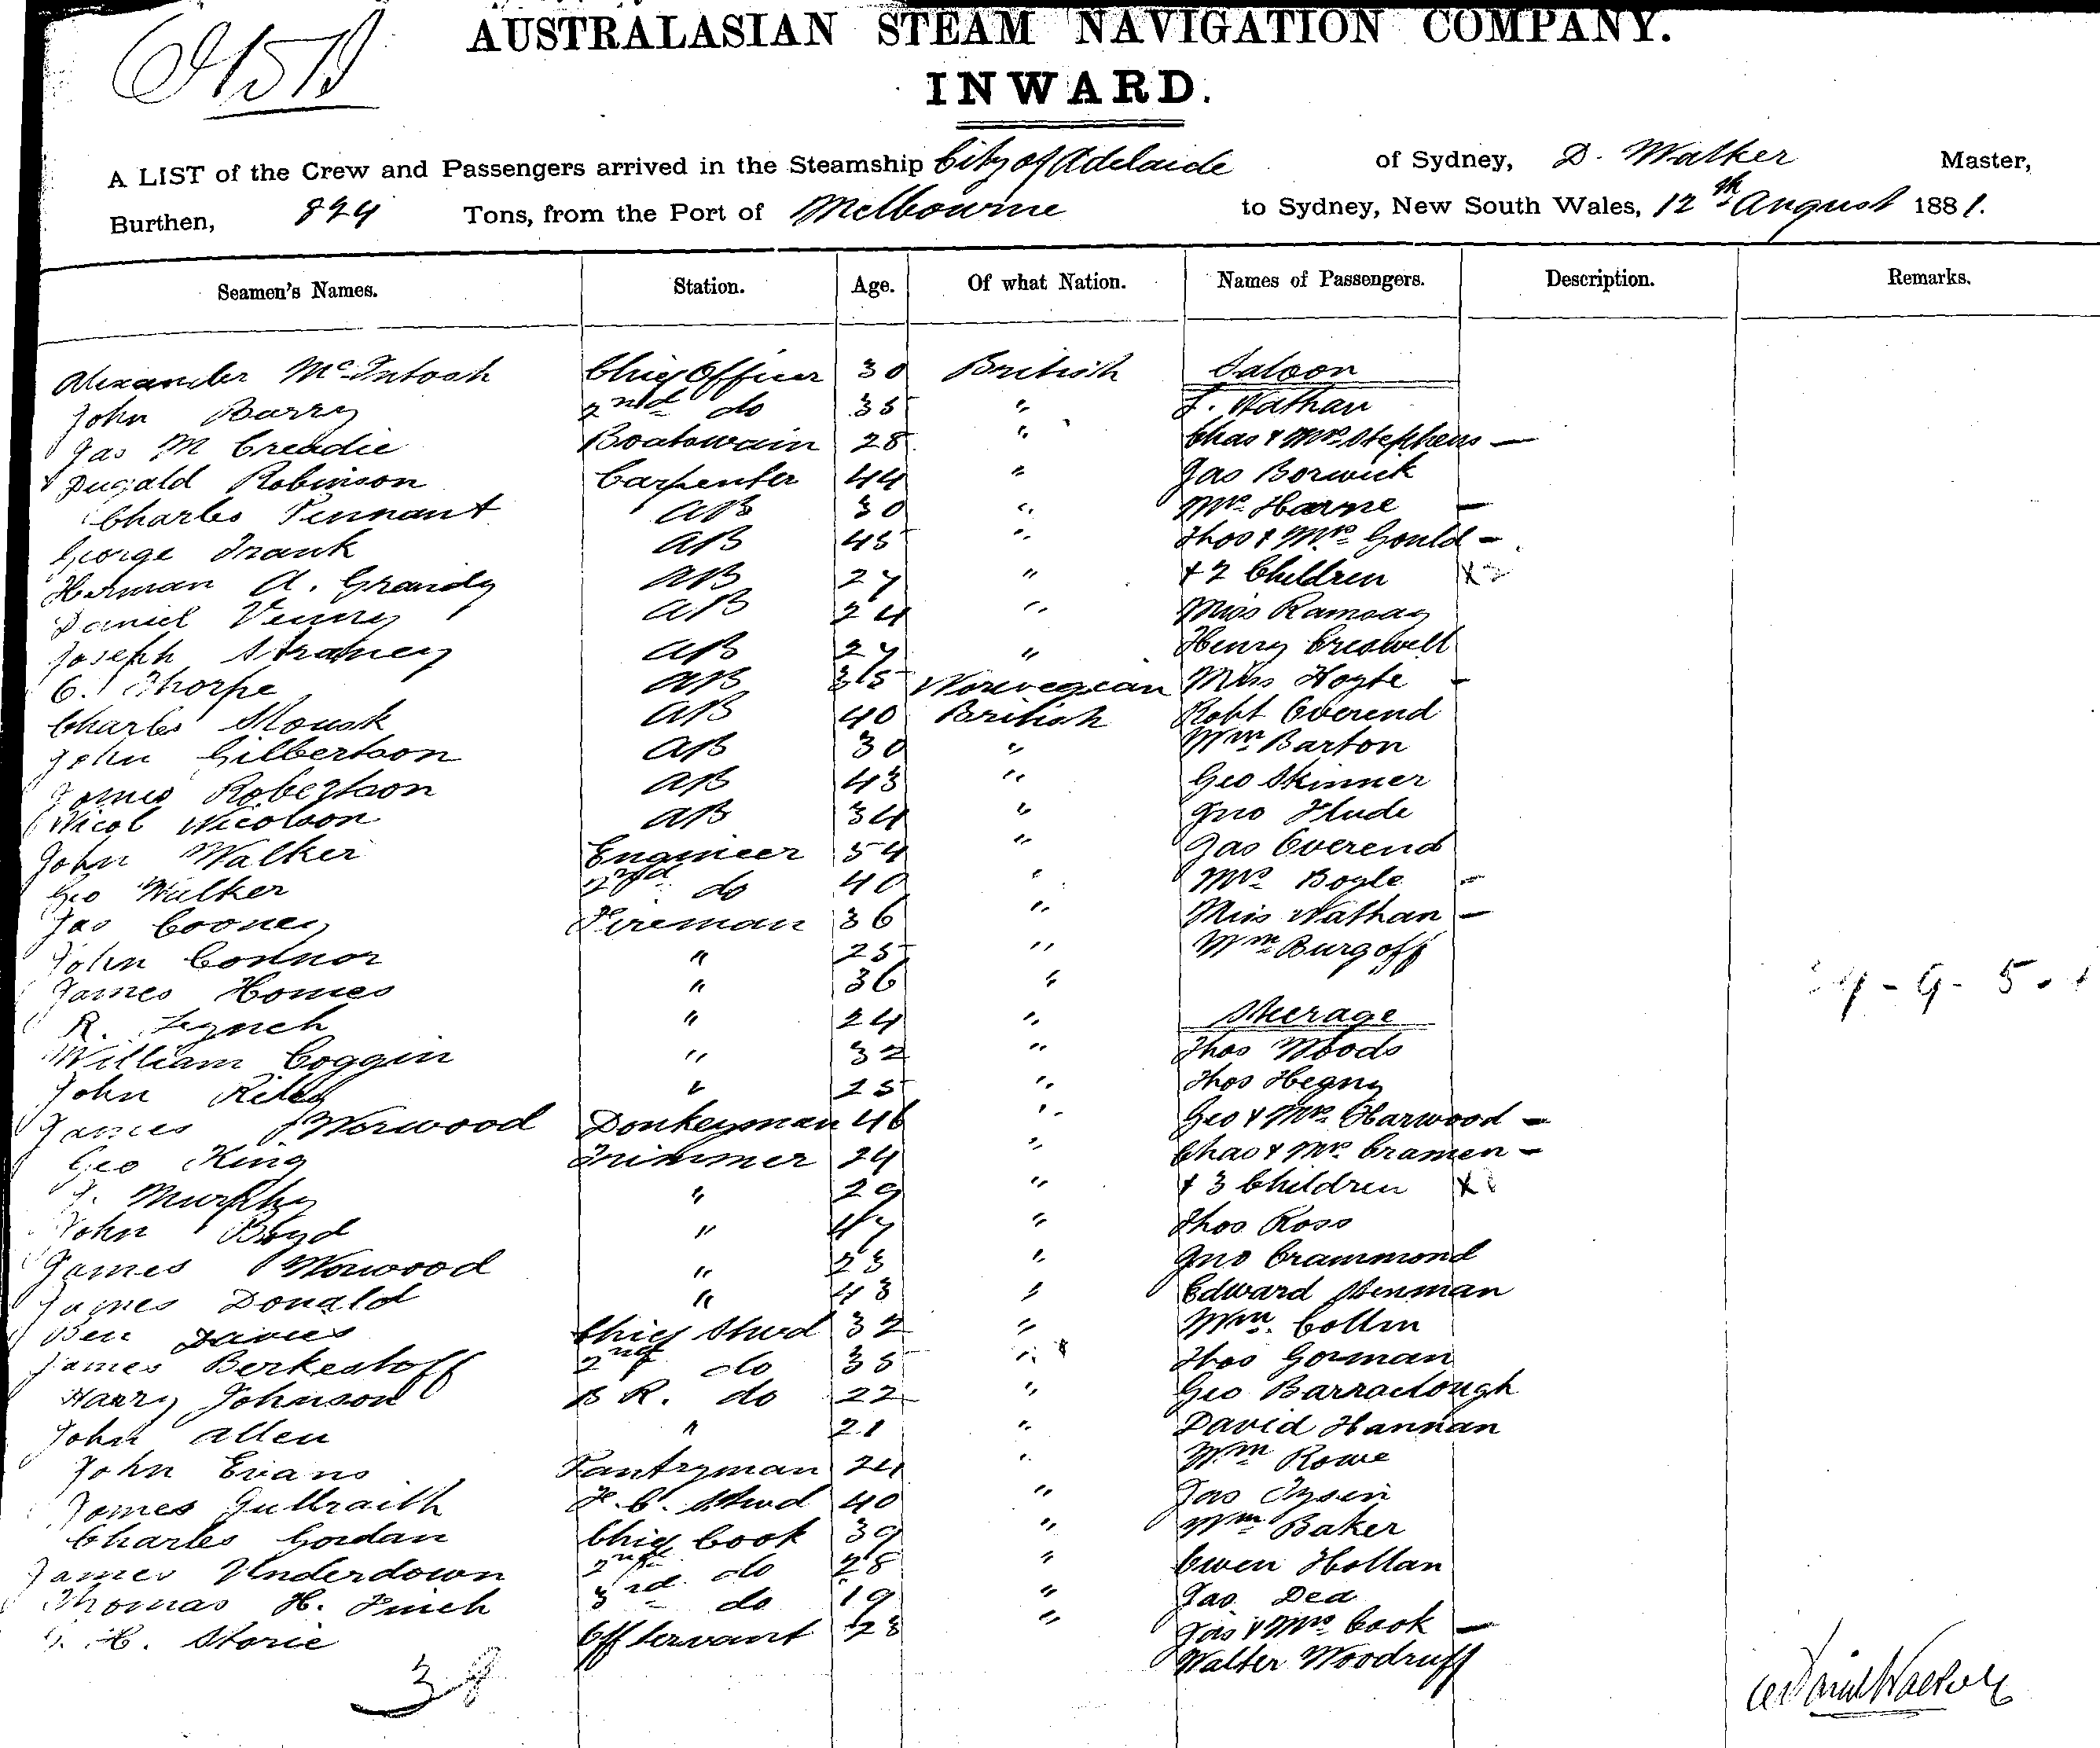 AUSTRALASIAN STEAM NAVIGATION COMPANY.
INWARD.
A LIST of the Crew and Passengers arrived in the Steamship City of Adelaide of Sydney, D. Walker Master,
Burthen, 824 Tons, from the Port of Melbourne to Sydney, New South Wales, 12th August 1881.
Seamen's Names. Station. Age. Of what Nation. Names of Passengers. Description. Remarks.
Alexander McIntosh Chief Officer 30 British Saloon
John Barry 2nd do 35 " Nathan
Jas McCreadie Boatswain 28 " Chas & Mrs Stephens —
Dugald Robinson Carpenter 44 " Jas Borwick
Charles Pennant AB 30 " Mrs Harne —
George Frank AB 45 " Thos & Mrs Gould —
Herman A. Grandy AB 27 " & 2 Children X
Daniel Venny AB 24 " Miss Ramsay
Joseph Straney AB 27 " Henry Creswell
C. Thorpe AB 35 Norwegian Miss Hoyte —
Charles AB 40 British Robt Overend
John Gilbertson AB 30 " Wm Barton
James Robertson AB 43 " Geo Skinner
Nicol Nicolson AB 34 " Jno Flude
John Walker Engineer 54 " Jas Overend
Geo Walker 2nd do 40 " Mrs Boyle —
Jas Cooney Fireman 36 " Miss Nathan —
John Connor " 25 " Wm Burgoff
James Homes " 36 "
R. Lynch " 24 " Steerage
William Coggin " 32 " Thos Woods
John Riley " 25 " Thos Hegny
James Norwood Donkeyman 46 " Geo & Mrs Harwood —
Geo King Trimmer 24 " Chas & Mrs Cramen —
Murphy " 29 " & 3 Children X
John Boyd " 47 " Thos Ross
James Norwood " 23 " Jno Crammond
James Donald " 43 " Edward Henman
Ben Davies Chief Stwd 32 " Wm. Collin
James Berkestoff 2nd do 35 " Thos Gorman
Harry Johnson B R. do 22 " Geo Barraclough
John Allen " 21 " David Hannan
John Evans Pantryman 24 " Wm Rowe
James Gulbraith F. C. Stwd 40 " Jas Tysen
Charles Gordan Chief Cook 39 " Wm Baker
James Underdown 2nd do 28 " Owen Hollan
Thomas H. Finch 3rd do 19 " Jas Dea
H. Storie Off Servant 23 " Jas & Mrs Cook —
Walter Woodruff